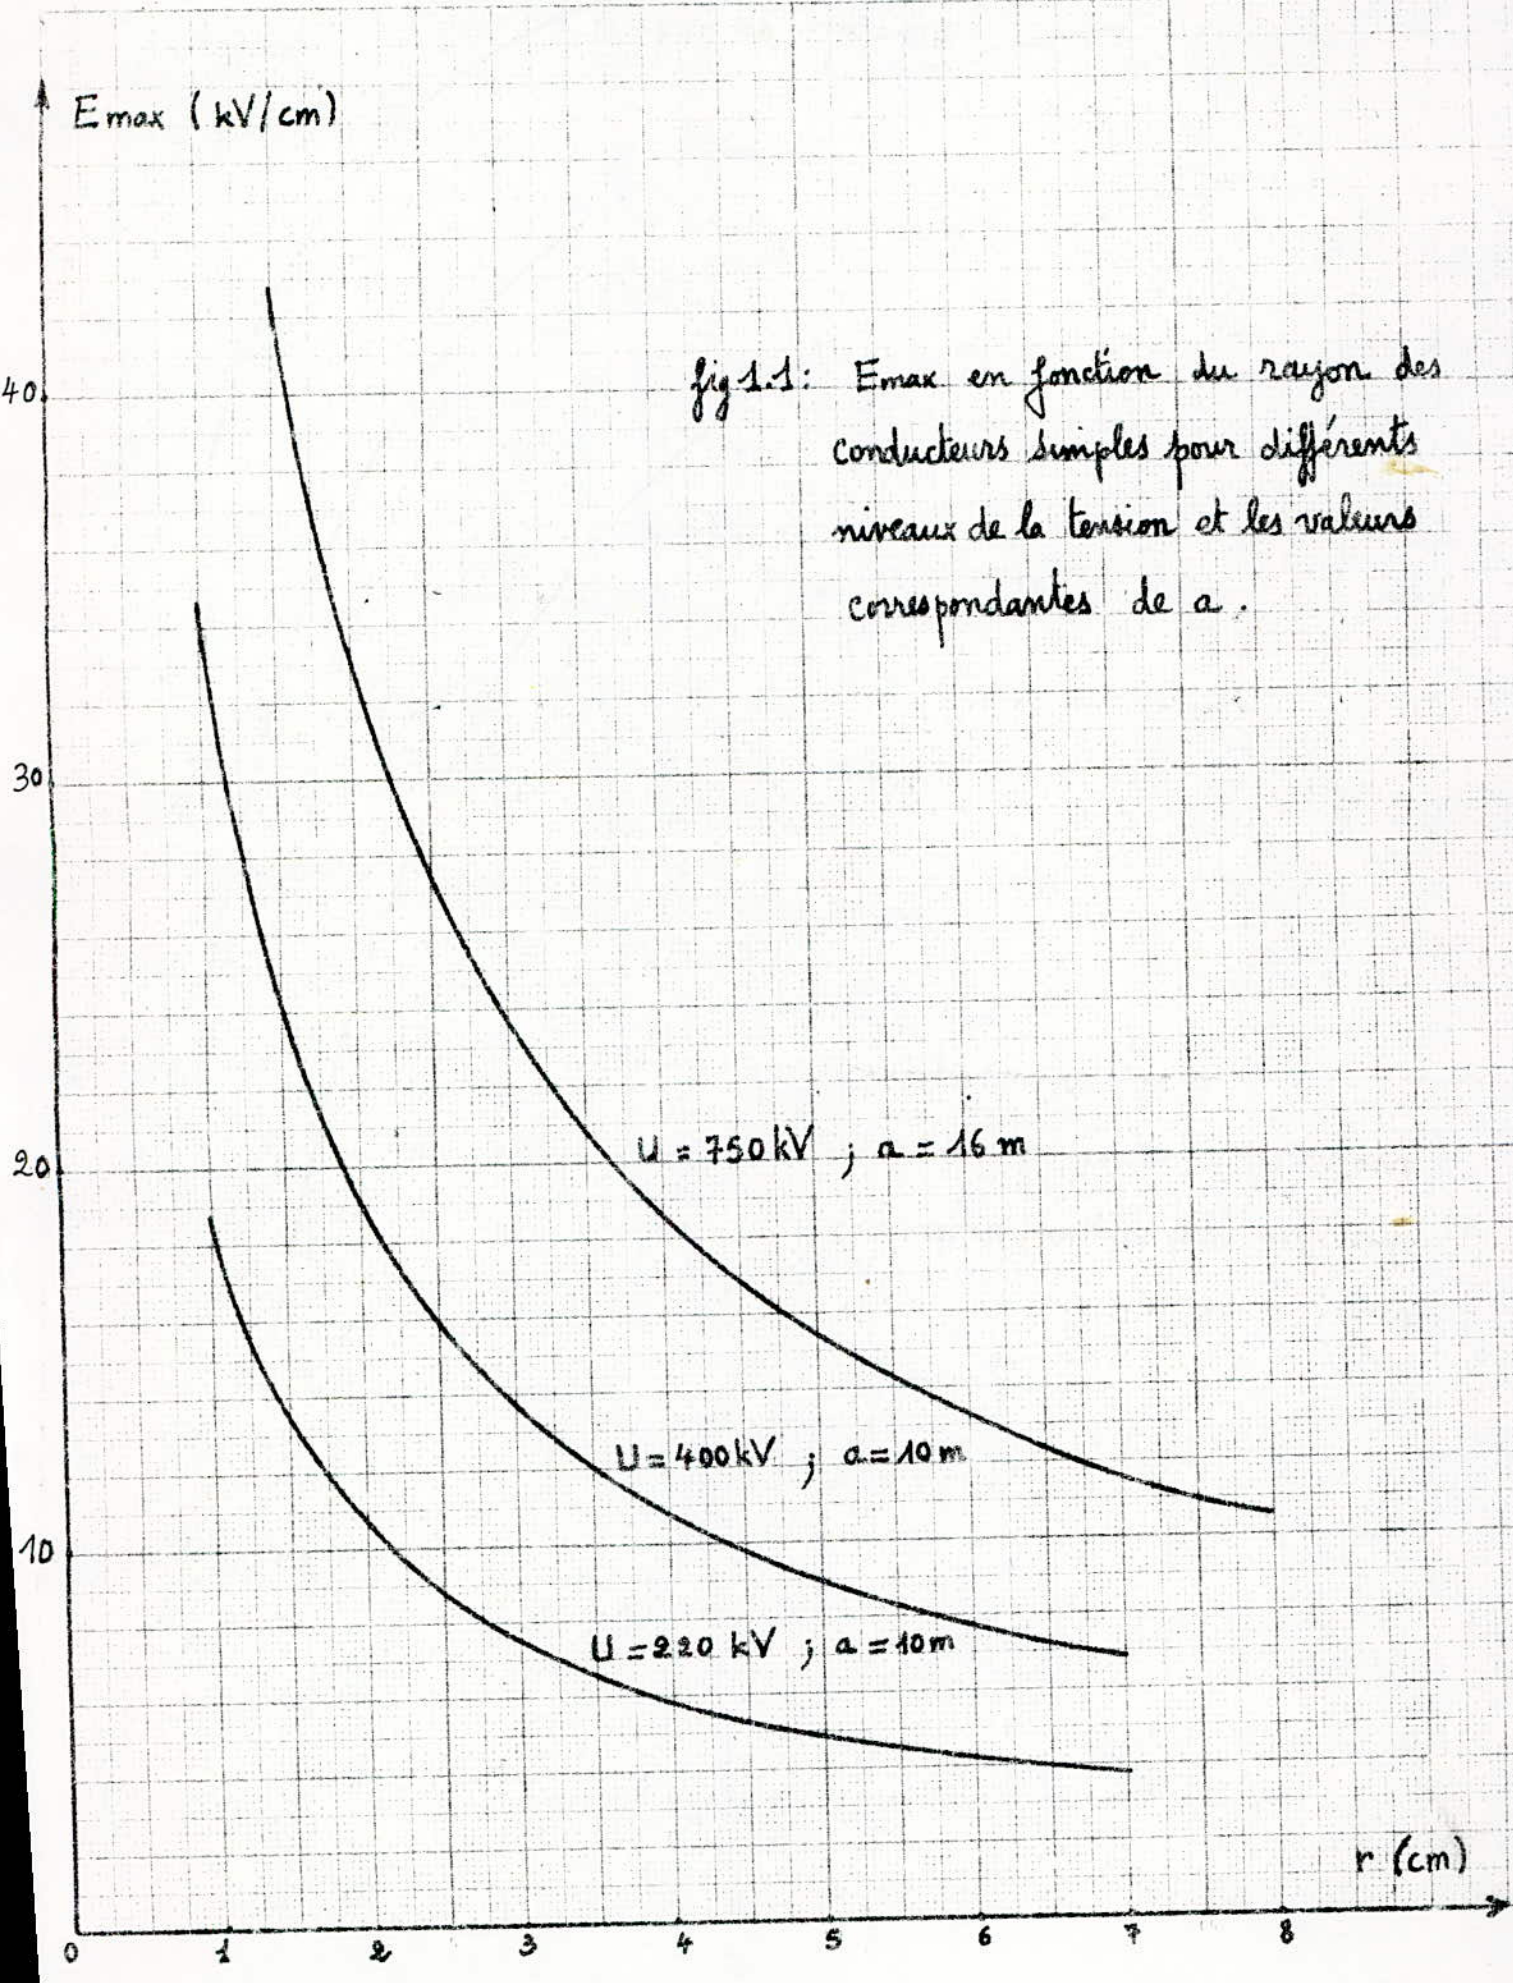 Emax (kV/cm)
40
fig 1.1: Emax en fonction du rayon des
conducteurs simples pour différents
niveaux de la tension et les valeurs
correspondantes de a.
30
20
U = 750 kV ; a = 16 m
U = 400 kV ; a = 10 m
10
U = 220 kV ; a = 10 m
r (cm)
0 1 2 3 4 5 6 7 8